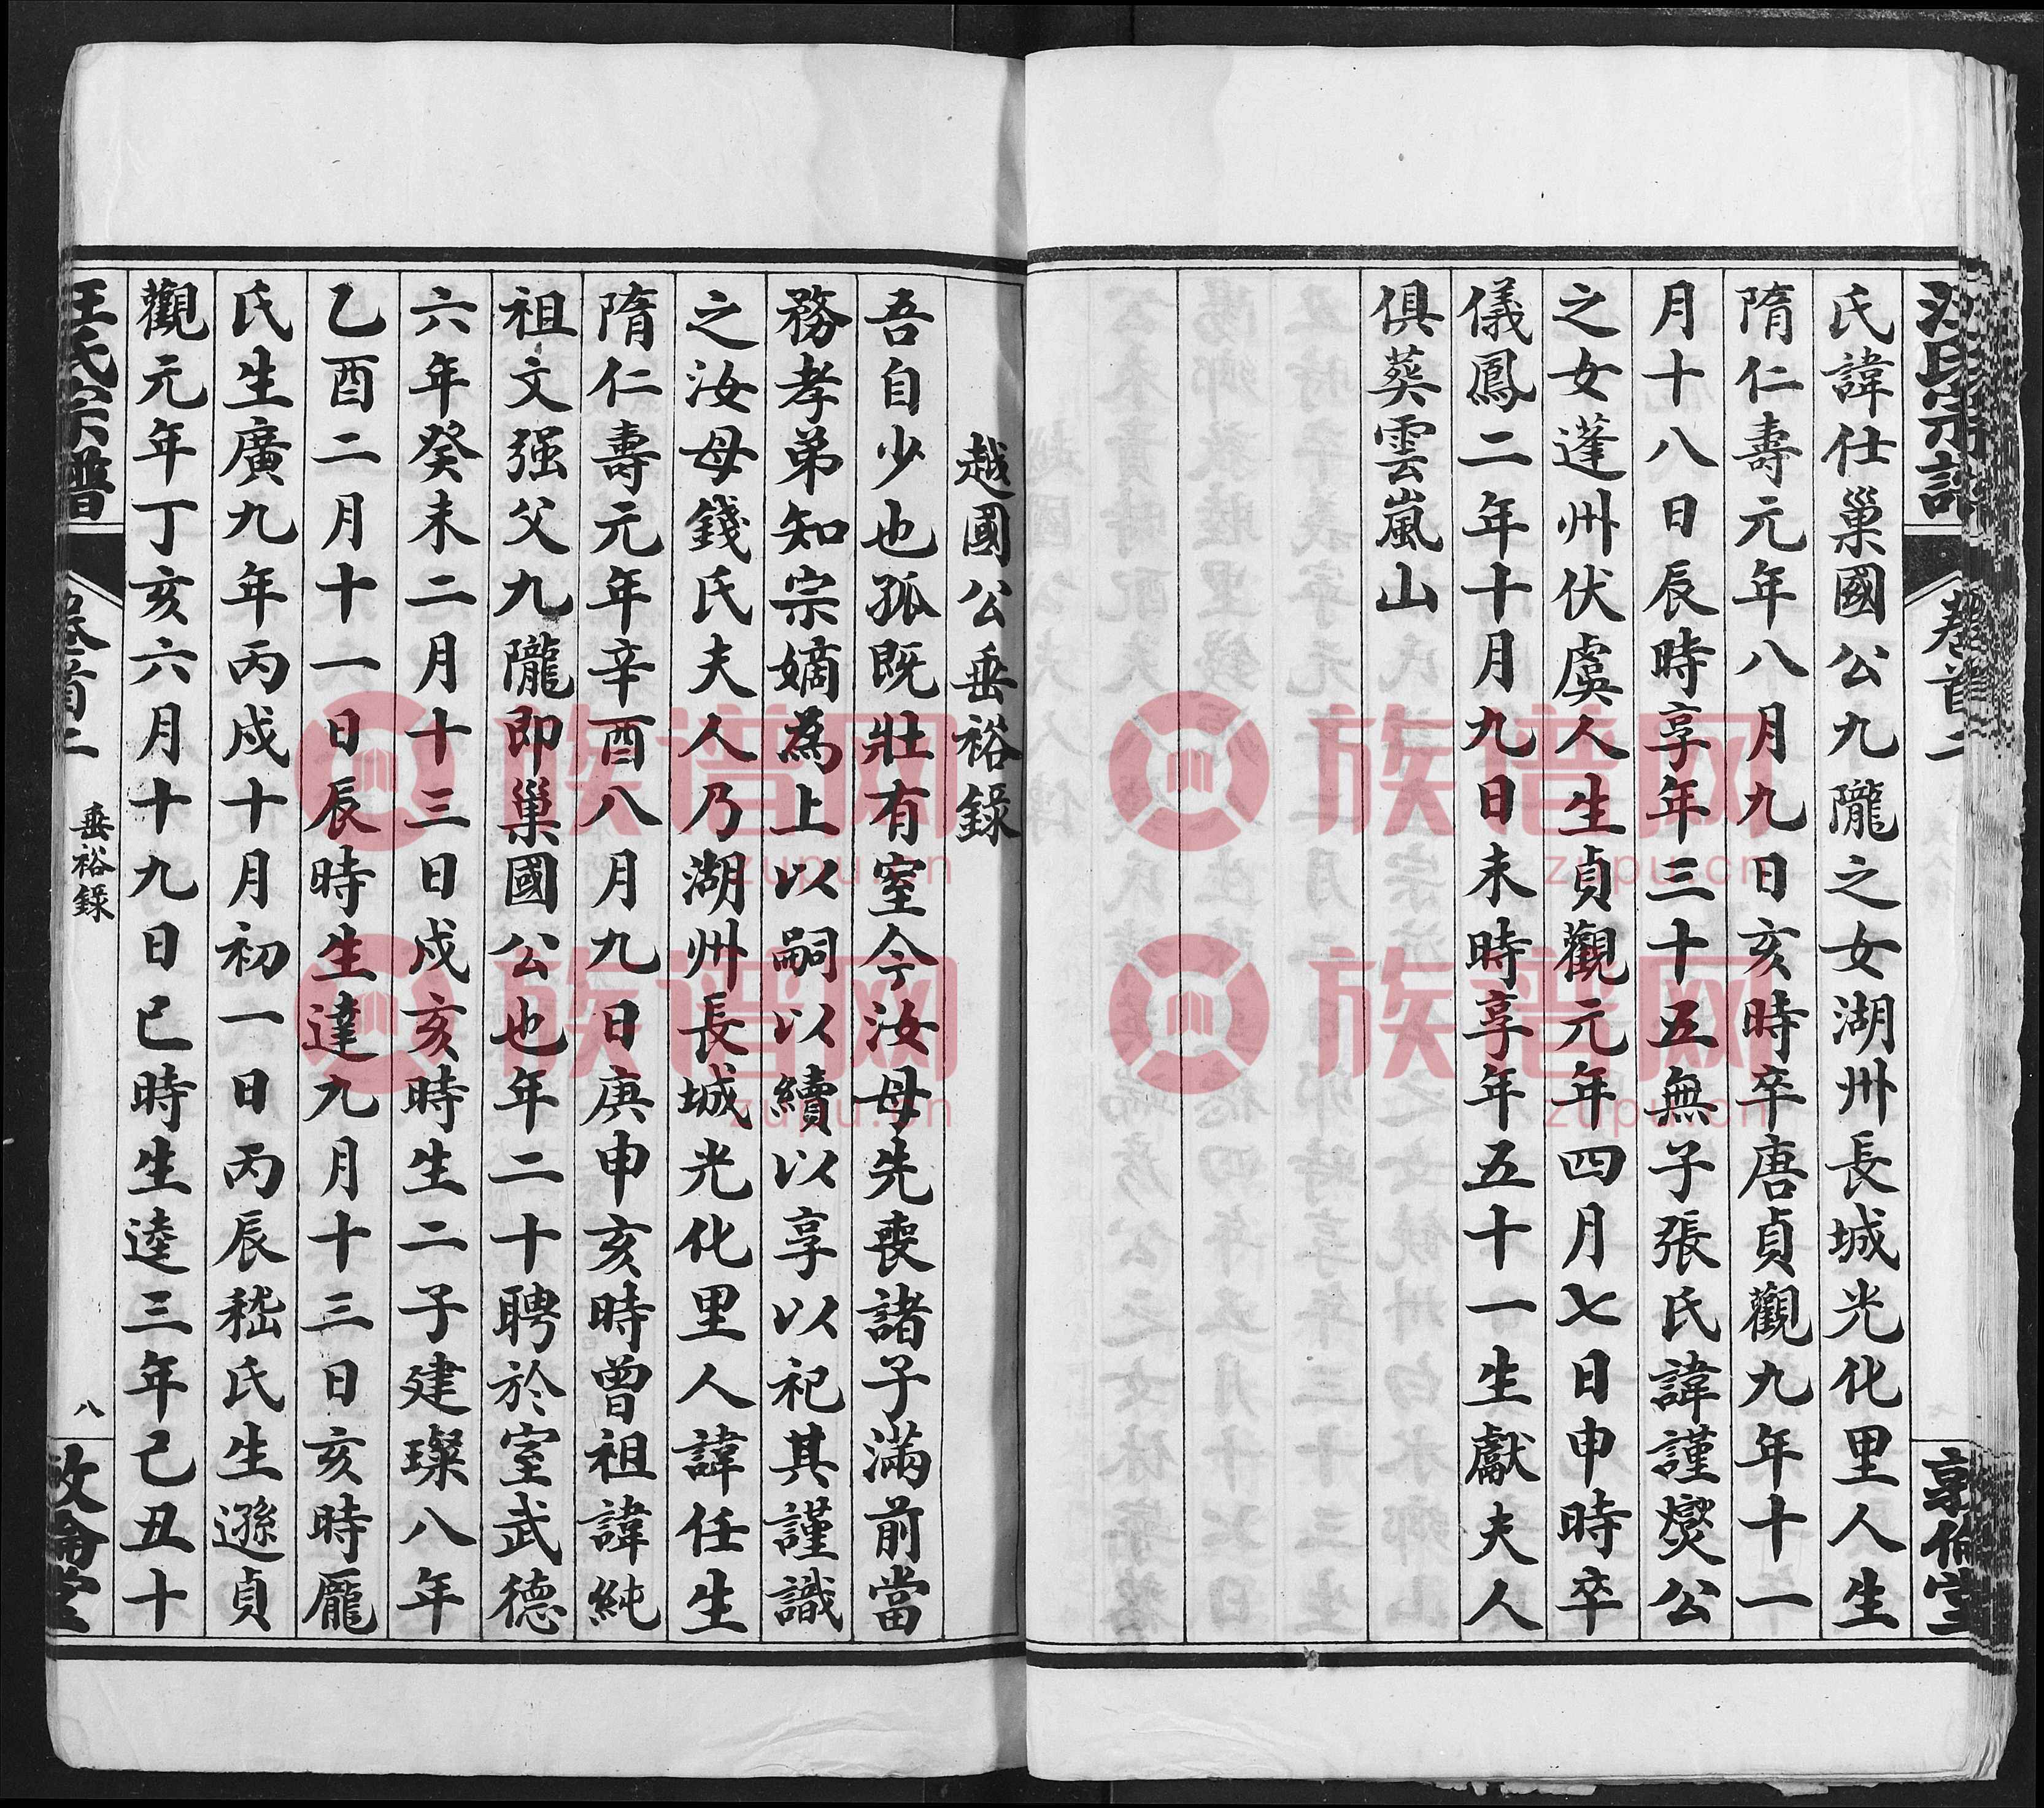 汪氏宗譜 卷首二 敦倫堂
氏諱仕巢國公九隴之女湖州長城光化里人生
隋仁壽元年八月九日亥時卒唐貞觀九年十一
月十八日辰時享年三十五無子張氏諱謹爕公
之女蓬州伏虞人生貞觀元年四月七日申時卒
儀鳳二年十月九日未時享年五十一生獻夫人
俱葬雲嵐山
越國公垂裕錄
吾自少也孤既壯有室今汝母先喪諸子滿前當
務孝弟知宗嫡為上以嗣以續以享以祀其謹識
之汝母錢氏夫人乃湖州長城光化里人諱任生
隋仁壽元年辛酉八月九日庚申亥時曾祖諱純
祖文强父九隴即巢國公也年二十聘於室武德
六年癸未二月十三日戌亥時生二子建璨八年
乙酉二月十一日辰時生達九月十三日亥時龐
氏生廣九年丙戌十月初一日丙辰嵇氏生遜貞
觀元年丁亥六月十九日巳時生逵三年己丑十
汪氏宗譜 卷首二 垂裕錄 八 敦倫堂
族谱网
zupu.cn
族谱网
zupu.cn
族谱网
zupu.cn
族谱网
zupu.cn